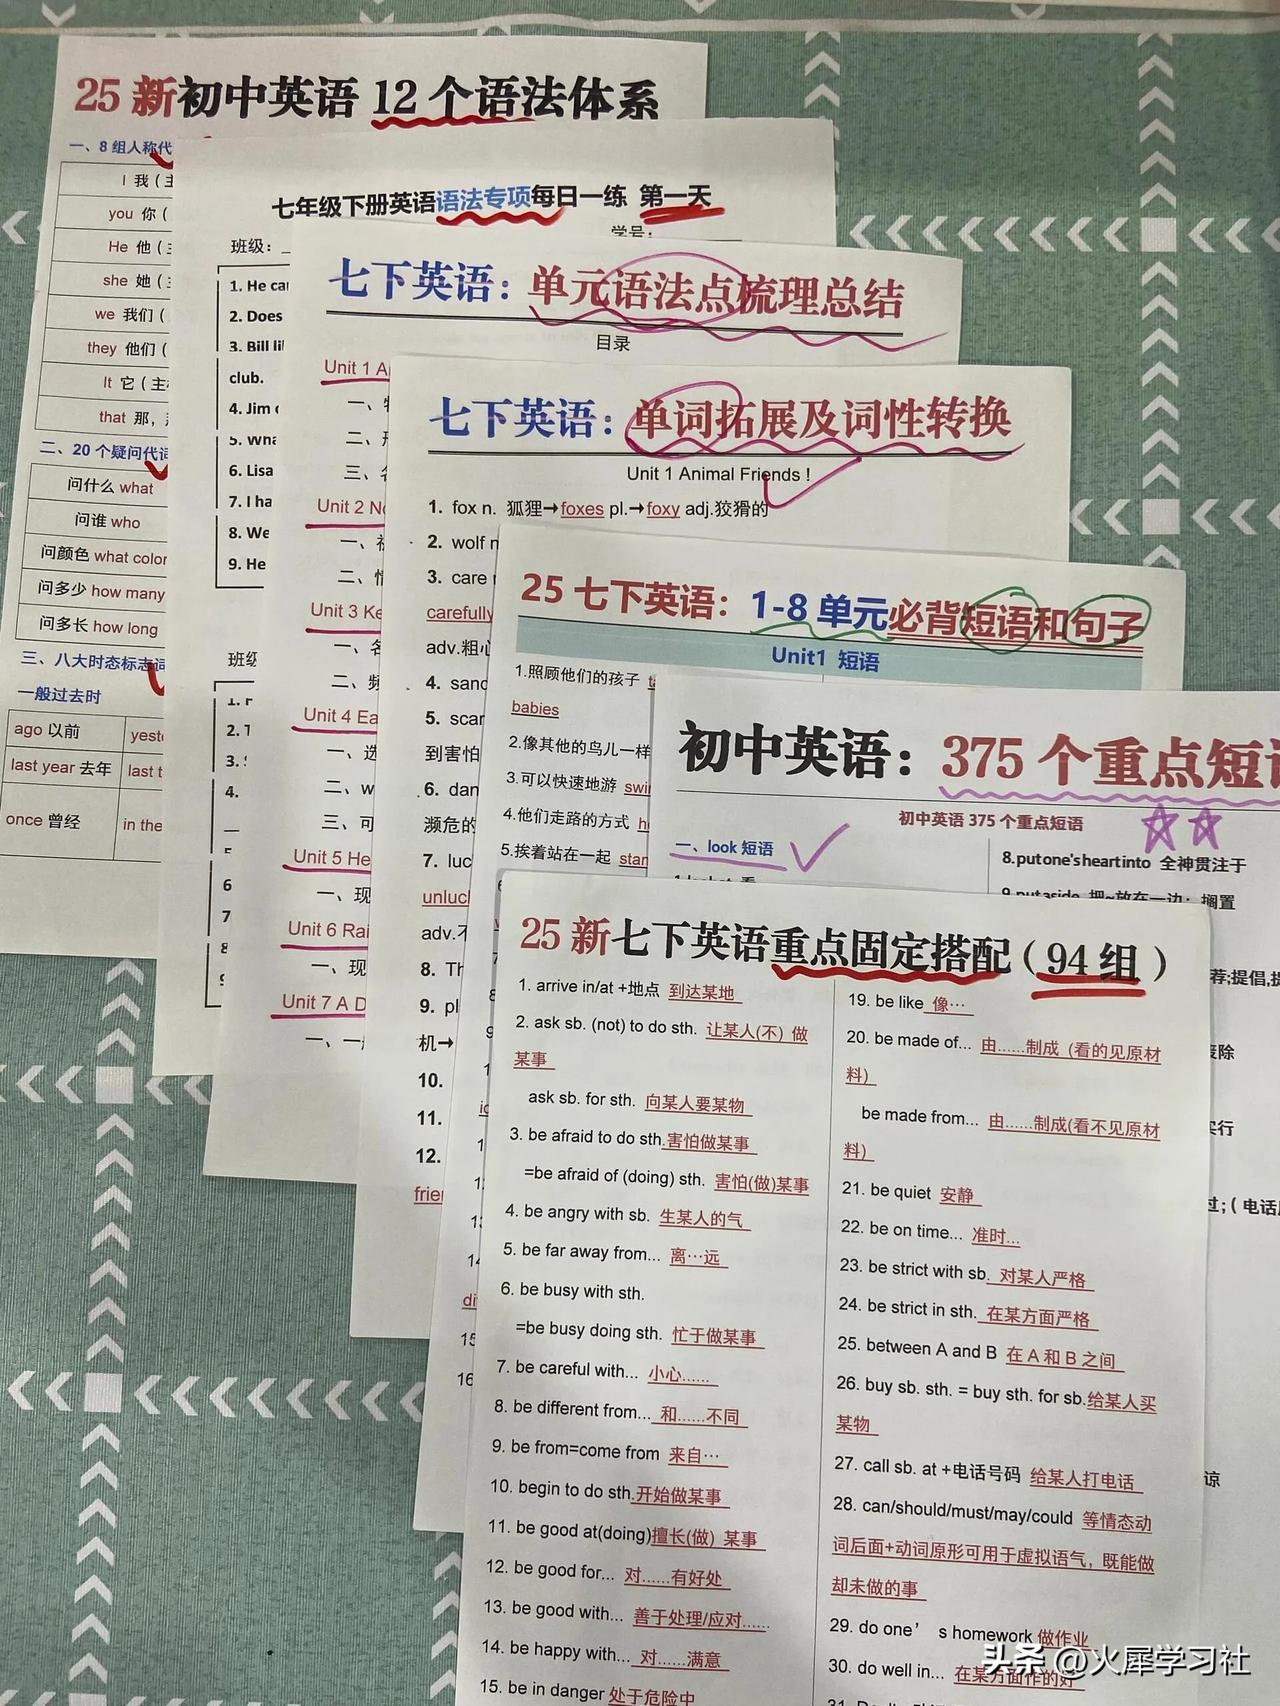 25 新初中英语 12 个语法体系
一、8 组人称代
I 我 (主
you 你 (
He 他 (
she 她 (
we 我们 (
they 他们 (
It 它 (主
that 那,
二、20 个疑问代词
问什么 what
问谁 who
问颜色 what color
问多少 how many
问多长 how long
三、八大时态标志词
一般过去时
ago 以前
last year 去年 last t
once 曾经 in the
七年级下册英语语法专项每日一练 第一天
学号:
班级:
1. He
2. Does
3. Bill
club.
4. Jim
5. Wha
6. Lisa
7. I ha
8. We
9. He
班级
2. T
3.
4.
6
7
8
七下英语: 单元语法点梳理总结
目录
Unit 1 A
一、
二、
三、名
Unit 2 No
一、
二、情
Unit 3 Ke
一、名
二、频
Unit 4 Ea
一、选
二、w
三、可
Unit 5 He
一、现
Unit 6 Rai
一、现
Unit 7 A D
一、一
七下英语: 单词拓展及词性转换
Unit 1 Animal Friends !
1. fox n. 狐狸→foxes pl.→foxy adj.狡猾的
2. wolf n
3. care
carefully
adv.粗心
4. sand
5. scar
到害怕
6. dan
濒危的
7. luc
unlucl
adv.不
8. Th
9. pl
机→
10.
11.
12.
frier
25 七下英语: 1-8 单元必背短语和句子
Unit1 短语
1.照顾他们的孩子
babies
2.像其他的鸟儿一样
3.可以快速地游 swi
4.他们走路的方式 h
5.挨着站在一起 stan
15
16
初中英语: 375 个重点短语
初中英语 375 个重点短语
一、look 短语
8.put one's heart into 全神贯注于
9.put aside 把~放在一边; 搁置
荐;提倡,提
废除
实行
过; (电话
谅
25 新七下英语重点固定搭配 (94 组)
1. arrive in/at +地点 到达某地
2. ask sb. (not) to do sth. 让某人(不) 做
某事
ask sb. for sth. 向某人要某物
3. be afraid to do sth.害怕做某事
=be afraid of (doing) sth. 害怕(做)某事
4. be angry with sb. 生某人的气
5. be far away from... 离…远
6. be busy with sth.
=be busy doing sth. 忙于做某事
7. be careful with... 小心......
8. be different from... 和......不同
9. be from=come from 来自…
10. begin to do sth.开始做某事
11. be good at(doing)擅长(做) 某事
12. be good for... 对......有好处
13. be good with... 善于处理/应对......
14. be happy with... 对......满意
15. be in danger 处于危险中
19. be like 像…
20. be made of... 由......制成 (看的见原材
料)
be made from... 由......制成(看不见原材
料)
21. be quiet 安静
22. be on time... 准时...
23. be strict with sb. 对某人严格
24. be strict in sth. 在某方面严格
25. between A and B 在 A 和 B 之间
26. buy sb. sth. = buy sth. for sb.给某人买
某物
27. call sb. at +电话号码 给某人打电话
28. can/should/must/may/could 等情态动
词后面+动词原形可用于虚拟语气, 既能做
却未做的事
29. do one' s homework 做作业
30. do well in... 在某方面作的好
头条 @火犀学习社